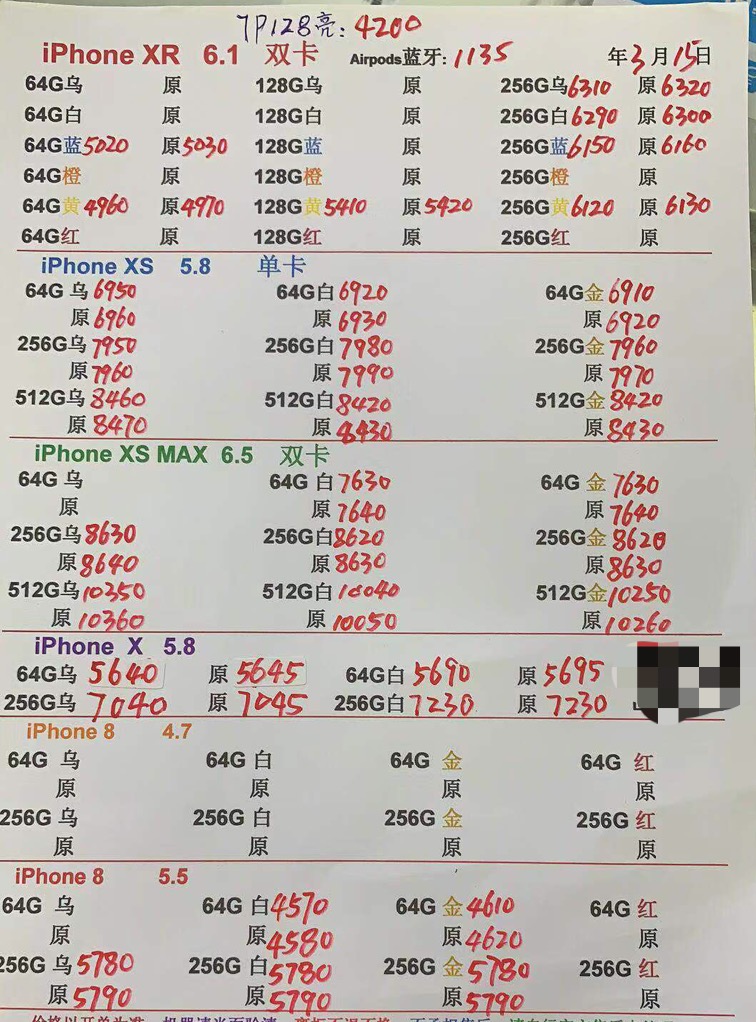 7P128亮: 4200
iPhone XR 6.1 双卡 Airpods蓝牙: 1135 年3月15日
64G乌 原 128G乌 原 256G乌6310 原6320
64G白 原 128G白 原 256G白6290 原6300
64G蓝5020 原5030 128G蓝 原 256G蓝6150 原6160
64G橙 原 128G橙 原 256G橙 原
64G黄4960 原4970 128G黄5410 原5420 256G黄6120 原6130
64G红 原 128G红 原 256G红 原
iPhone XS 5.8 单卡
64G 乌6950 64G白6920 64G金6910
原6960 原6930 原6920
256G乌7950 256G白7980 256G金7960
原7960 原7990 原7970
512G乌8460 512G白8420 512G金8420
原8470 原8430 原8430
iPhone XS MAX 6.5 双卡
64G 乌 64G 白7630 64G 金7630
原 原7640 原7640
256G乌8630 256G白8620 256G金8620
原8640 原8630 原8630
512G乌10350 512G白10040 512G金10250
原10360 原10050 原10260
iPhone X 5.8
64G乌 5640 原 5645 64G白5690 原5695
256G乌 7040 原 7045 256G白7230 原 7230
iPhone 8 4.7
64G 乌 64G 白 64G 金 64G 红
原 原 原 原
256G 乌 256G 白 256G 金 256G 红
原 原 原 原
iPhone 8 5.5
64G 乌 64G 白4570 64G 金4610 64G 红
原 原4580 原4620 原
256G 乌5780 256G 白5780 256G 金5780 256G 红
原5790 原5790 原5790 原